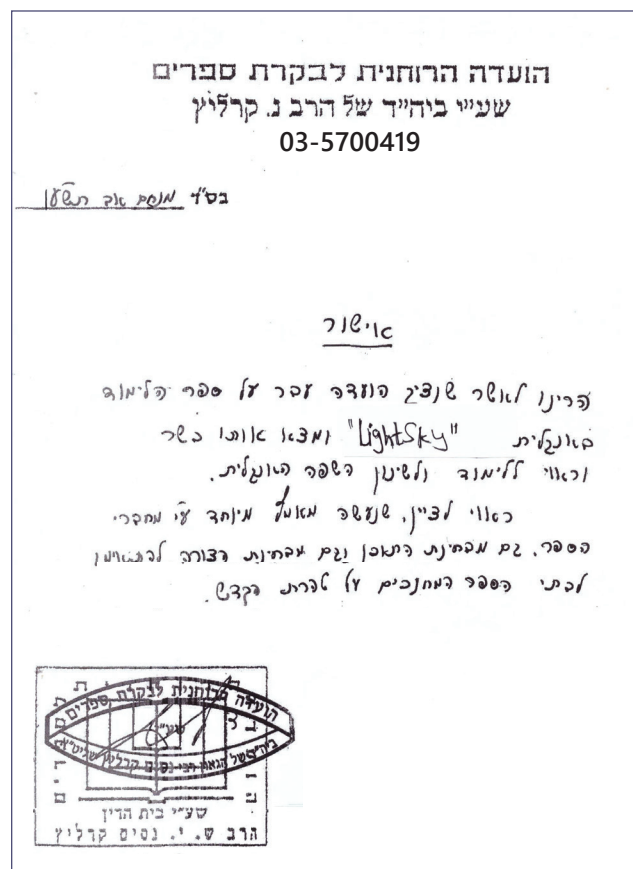 הועדה הרוחנית לבקרת ספרים
שע״י ביה״ד של הרב נ. קרליץ
03-5700419
בס"ד מנחם אב תשע
אישור
הרינו לאשר שנציג הועדה עבר על ספר הלימוד
באנגלית "LightSky" ומצא אותו כשר
וראוי ללימוד ולשינון השפה האנגלית.
ראוי לציין, שנעשה מאמץ מיוחד ע״י מחברי
הספר, גם מבחינת התוכן וגם מבחינת הצורה להתאימו
לבתי הספר המחנכים על טהרת הקדש.
הועדה הרוחנית לבקרת ספרים
שע״י
ביה״ד של הגאון רבי נסים קרליץ שליט״א
שע״י בית הדין
הרב ש. י. נסים קרליץ